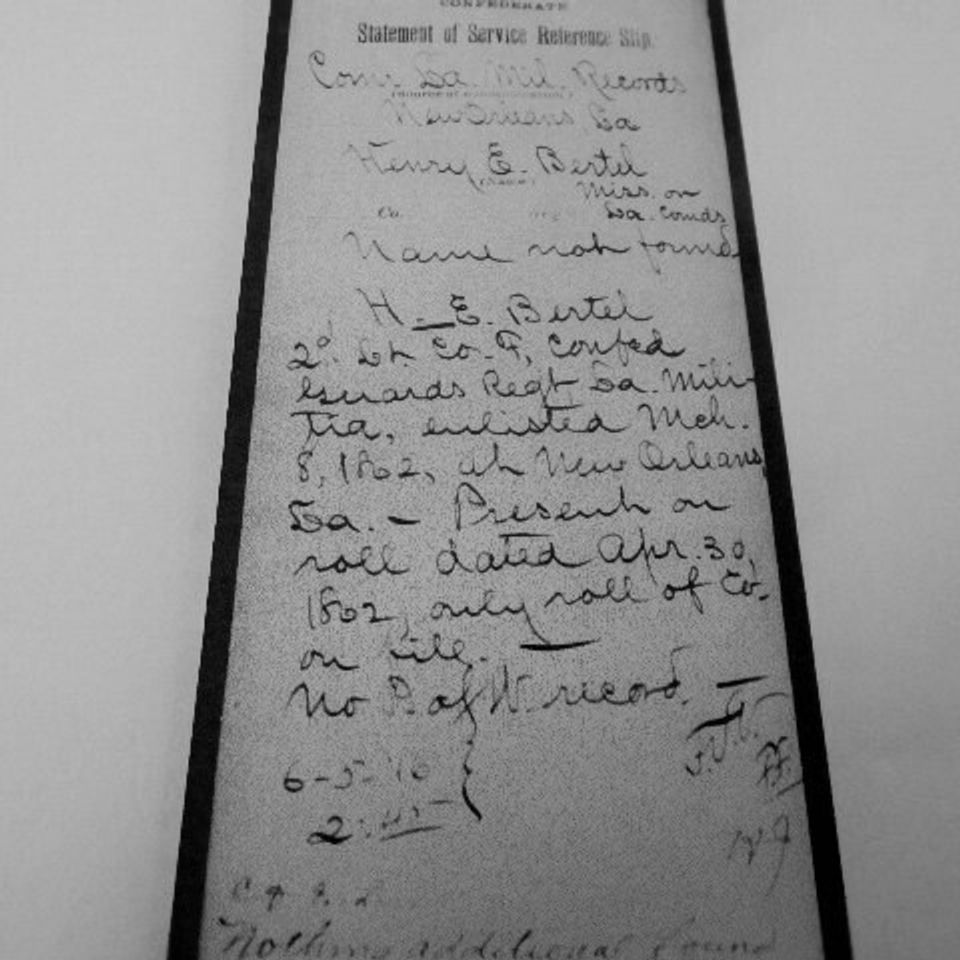 CONFEDERATE
Statement of Service Reference Slip.
Com. La. Mil. Records
New Orleans, La
Henry E. Bertel
(Name)
Miss. or
Co. La. Comds
Name not found
H. E. Bertel
2d. Lt. Co. F, Confed
Guards Regt La. Mili-
tia, enlisted Mch.
8, 1862, at New Orleans,
La. - Present on
roll dated Apr. 30,
1862, only roll of Co.
on file. —
No P. of W. record. —
6-5-
2:45
Nothing additional found